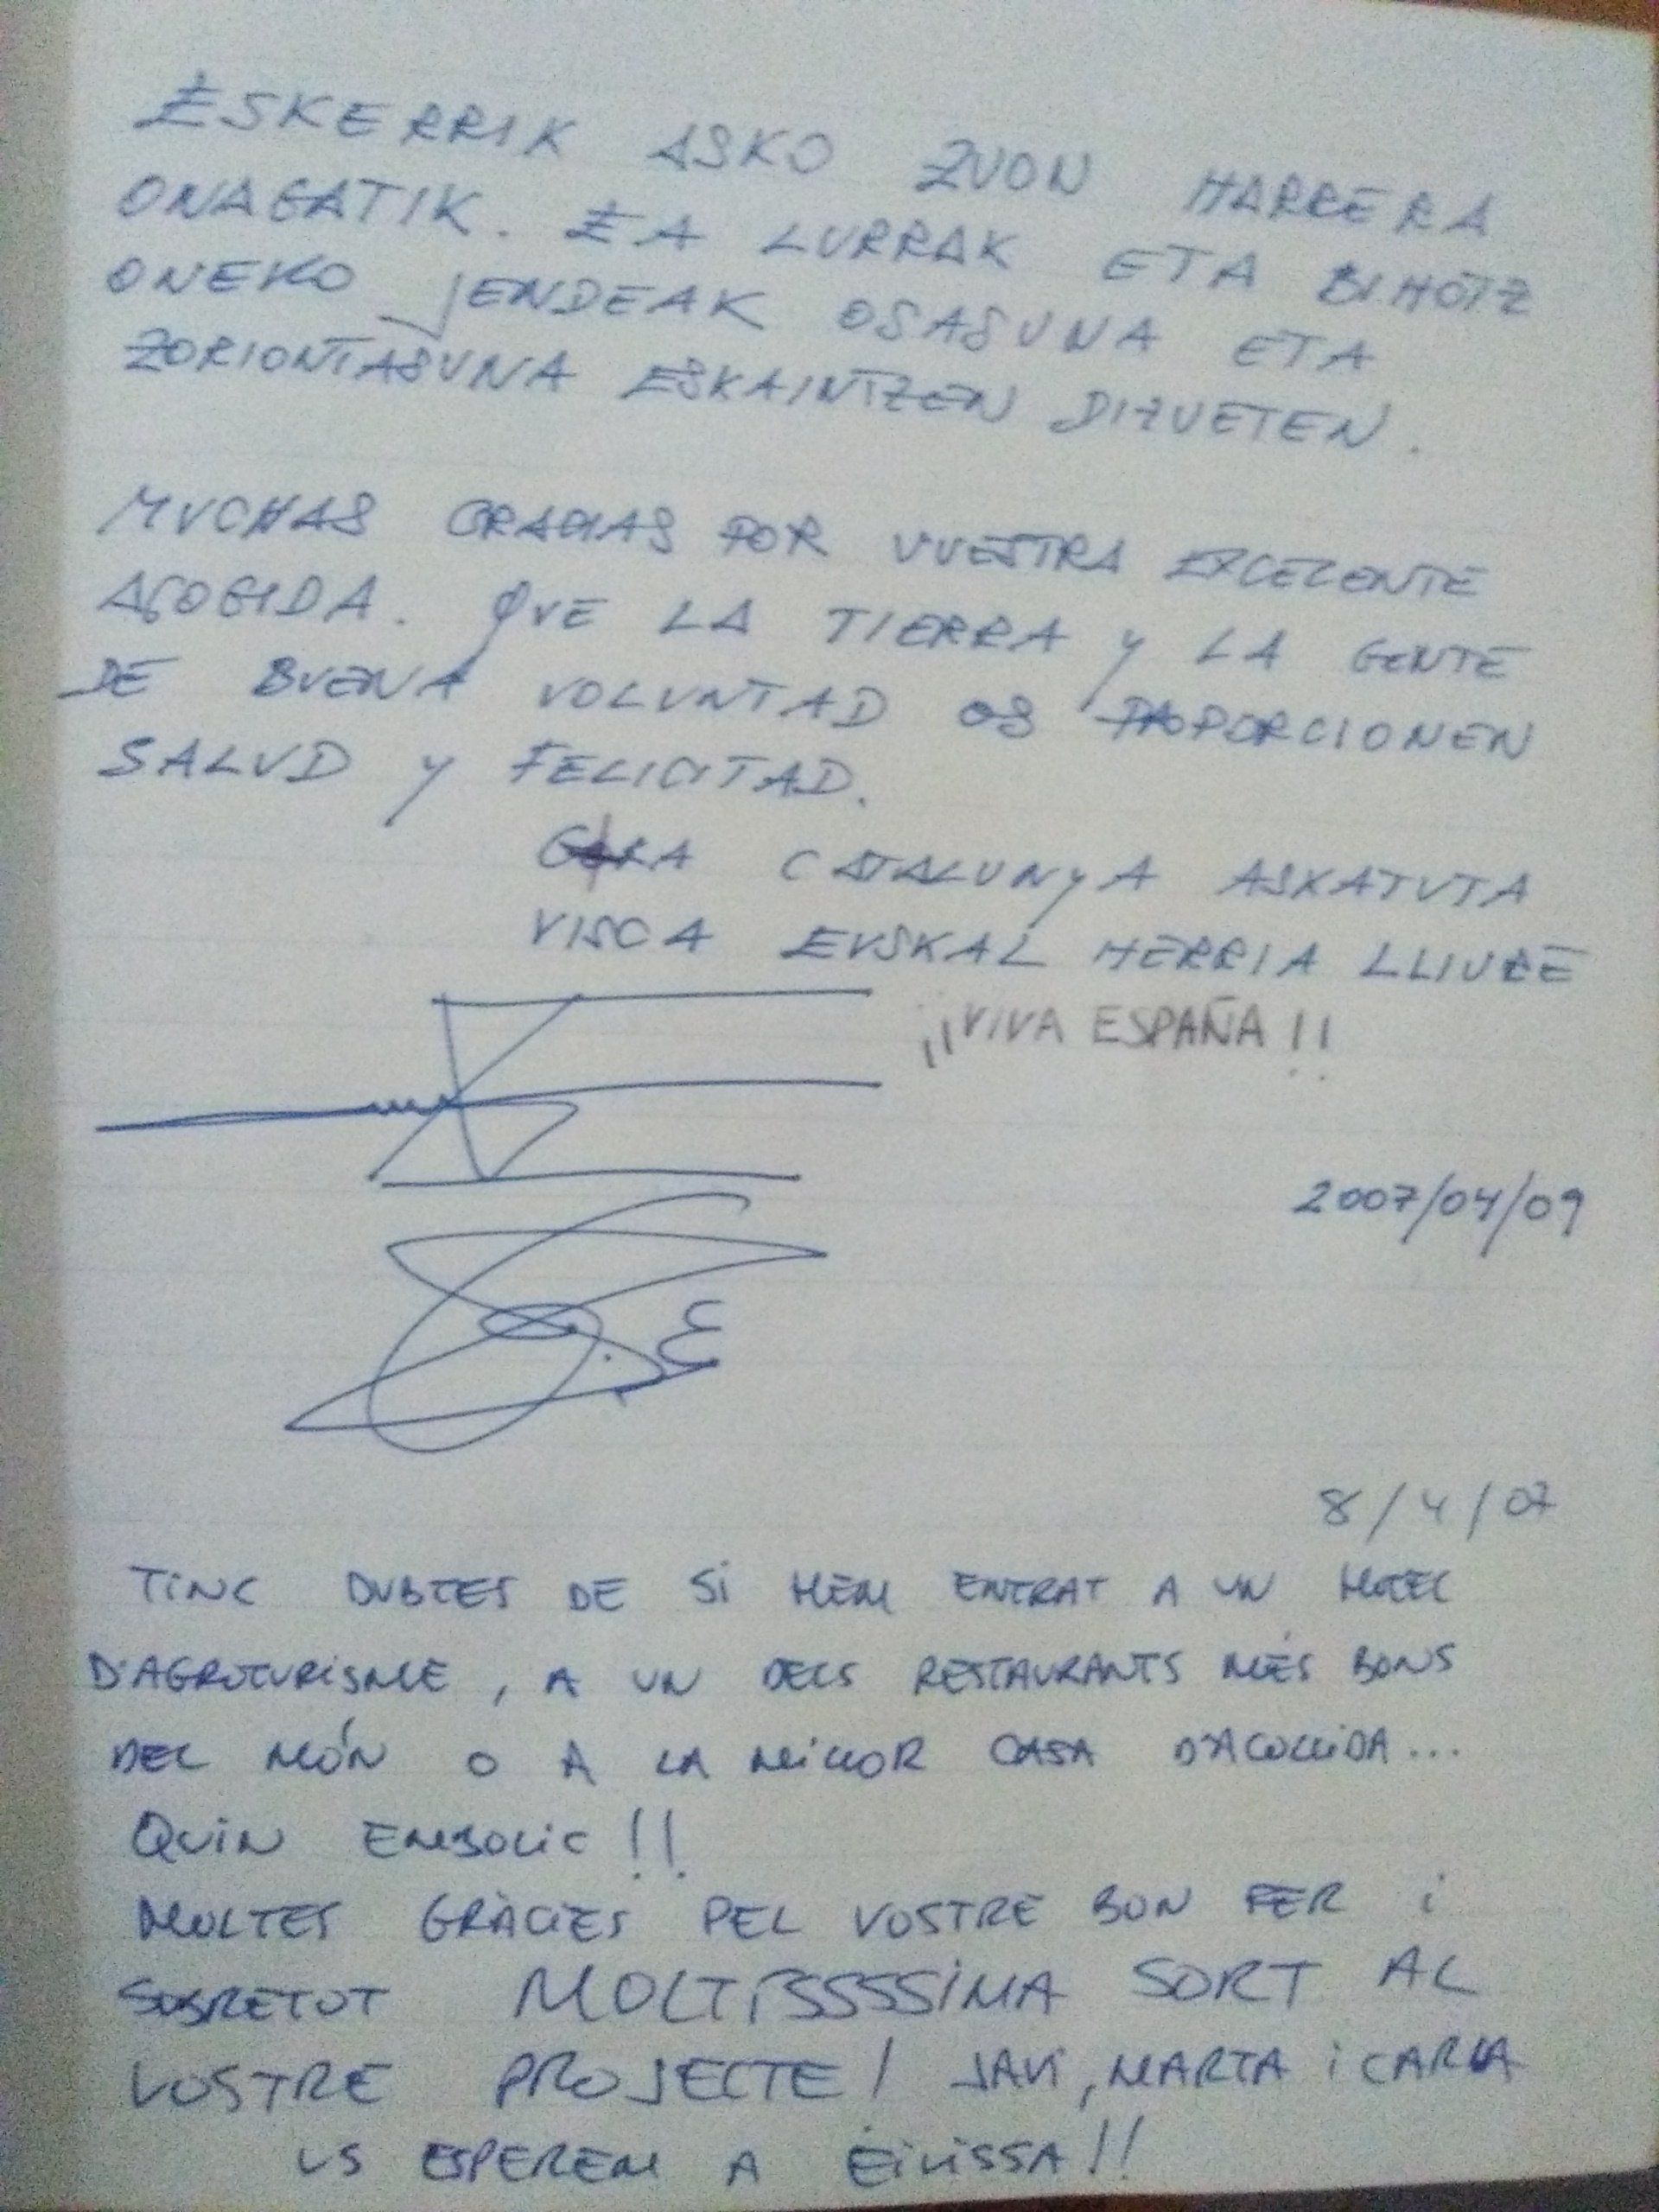 ESKERRIK ASKO ZUON HARRERA
ONAGATIK. EA LURRAK ETA BIHOTZ
ONEKO JENDEAK OSASUNA ETA
ZORIONTASUNA ESKAINTZEN DIZUETEN.
MUCHAS GRACIAS POR VUESTRA EXCELENTE
ACOGIDA. QUE LA TIERRA Y LA GENTE
DE BUENA VOLUNTAD OS PROPORCIONEN
SALUD Y FELICITAD.
GORA CATALUNYA ASKATUTA
VISCA EUSKAL HERRIA LLIURE
¡¡VIVA ESPAÑA!!
2007/04/09
8/4/07
TINC DUBTES DE SI HEM ENTRAT A UN HOTEL
D'AGROTURISME, A UN DELS RESTAURANTS MÉS BONS
DEL MÓN O A LA MILLOR CASA D'ACOLLIDA...
QUIN EMBOLIC!!
MOLTES GRÀCIES PEL VOSTRE BON FER I
SOBRETOT MOLTÍSSSSSIMA SORT AL
VOSTRE PROJECTE! JAVI, MARTA I CARLA
US ESPEREM A EIVISSA!!